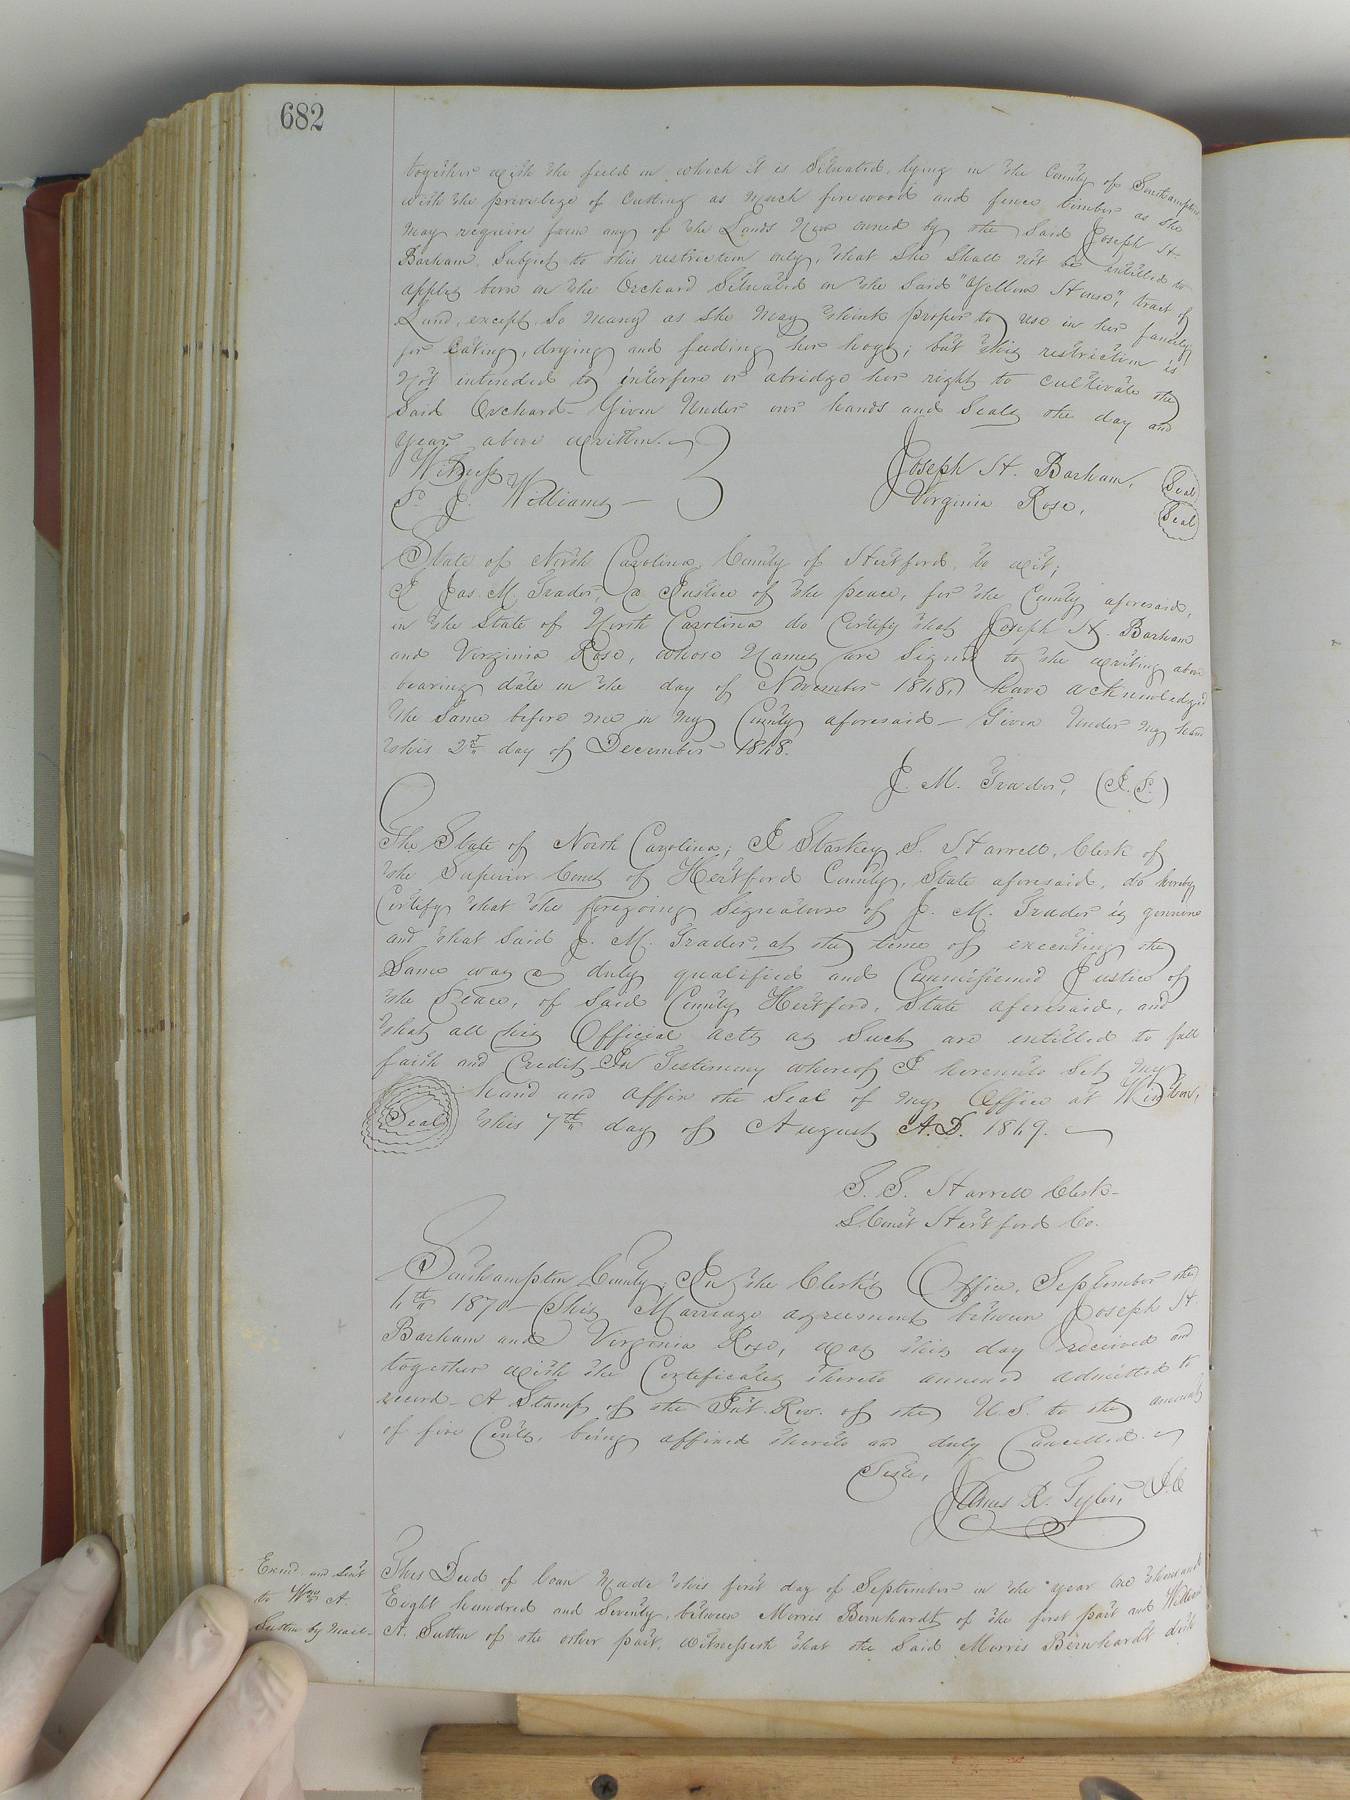 682
together with the field in which it is Situated, lying in the County of Southampton
with the privilege of Cutting as much firewood and fence timber as she
may require from any of the Lands now owned by the Said Joseph H.
Barham. Subject to this restriction only, that she Shall not be entitled to
apples born on the Orchard Situated on the Said "Yellow House", tract of
Land, except So many as She may think proper to use in her family
for Eating, drying and feeding her hogs; but this restriction is
not intended to interfere or abridge her right to cultivate the
Said Orchard- Given Under our hands and Seals the day and
year above written.
Witness
P. J. Williams
Joseph H. Barham, Seal
Virginia Rose, Seal
State of North Carolina County of Hertford, to wit;
I Jas. M. Trader, a Justice of the peace, for the County aforesaid,
in the State of North Carolina do Certify that Joseph H. Barham
and Virginia Rose, whose Names are Signed to the writing above
bearing date in the day of November 1868, have acknowledged
the Same before me in my County aforesaid- Given Under my hand
this 2nd day of December 1868.
J M. Trader, (J. P.)
The State of North Carolina; I Starkey S. Harrell, Clerk of
the Superior Court of Hertford County, State aforesaid, do hereby
Certify that the foregoing Signature of J. M. Trader is genuine
and that Said J. M. Trader, at the time of executing the
Same was a duly qualified and Commissioned Justice of
the Peace, of Said County Hertford, State aforesaid, and
that all his Official acts as Such are entitled to full
faith and Credit In Testimony whereof I hereunto Set my
hand and affix the Seal of my Office at Winton,
Seal this 7th day of August A.D. 1869.
S. S. Harrell Clerk-
S. Court Hertford Co.
Southampton County; In the Clerk's Office, September the
4th 1870- This Marriage agreement between Joseph H.
Barham and Virginia Rose, was this day received and
together with the Certificates thereto annexed admitted to
record- A Stamp of the Int. Rev. of the U.S. to the amount
of five Cents, being affixed thereto and duly Cancelled.
Teste,
James R. Tyler, D.C
Exmd. and Sent
to Wm A.
Sutton by Mail-
This Deed of loan made this first day of September in the year One thousand
Eight hundred and Seventy, between Morris Bernhardt of the first part and William
A. Sutton of the other part, witnesseth that the Said Morris Bernhardt doth